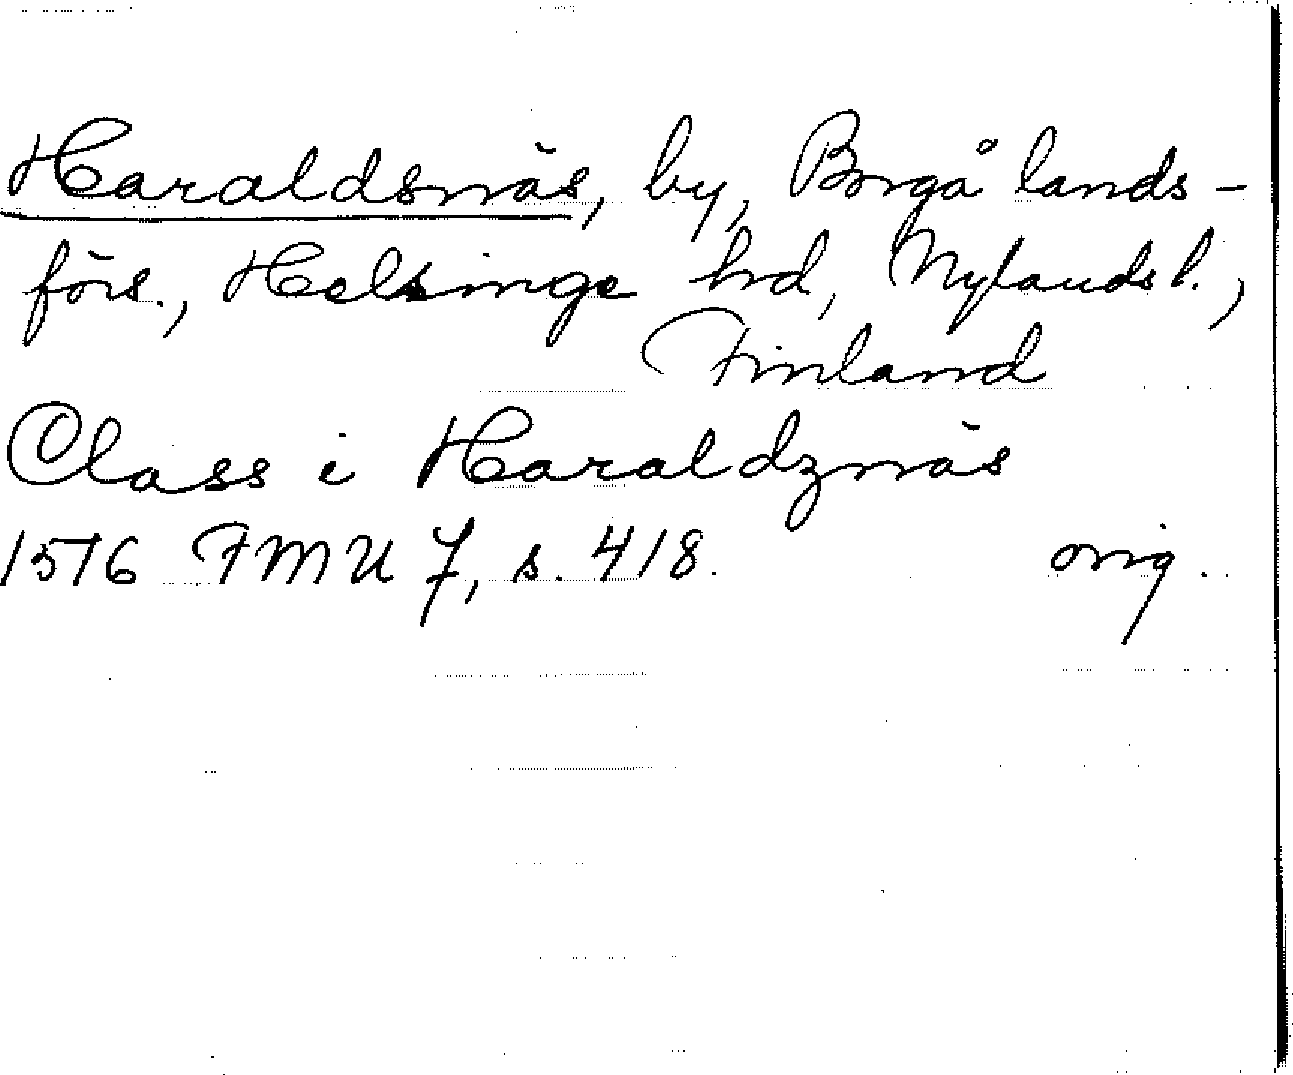 Haraldsnäs, by, Borgå lands-
förs., Helsinge hd, Nylands l.,
Finland
Class i Haraldznäs
1516 FMU 7, s. 418. orig.